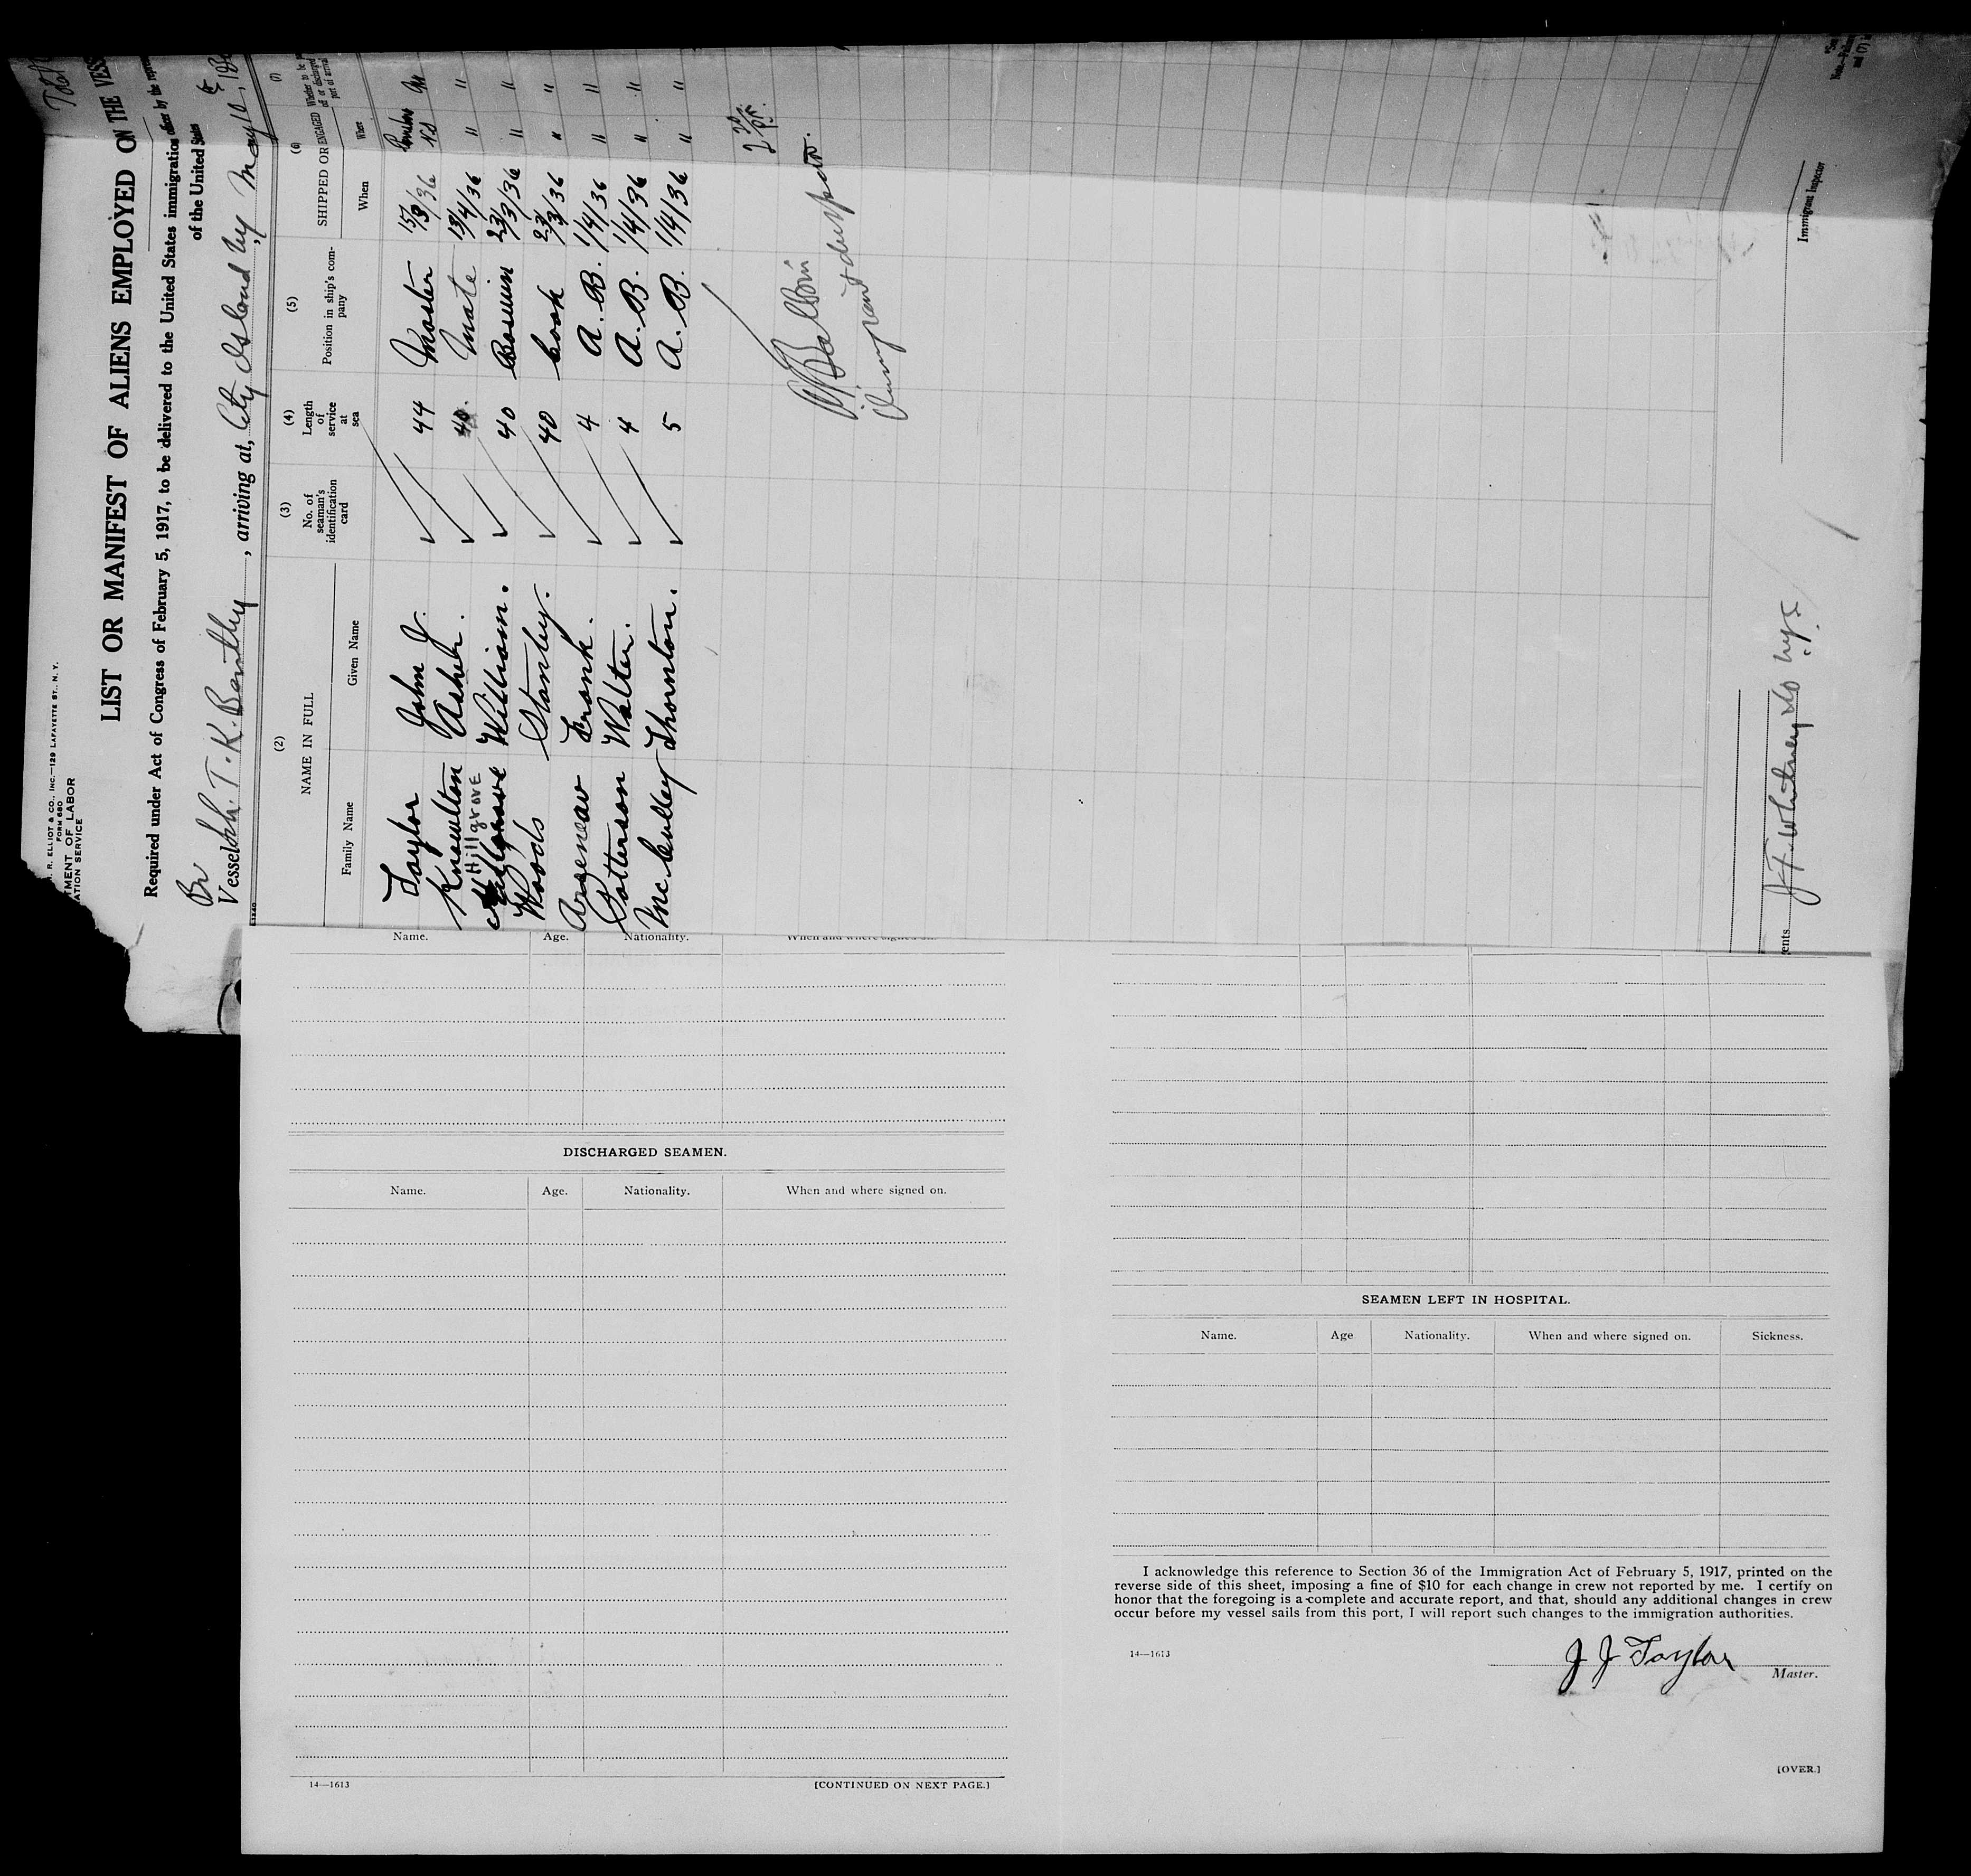 R. ELLIOT & CO., INC.—129 LAFAYETTE ST., N. Y.
FORM 680
TMENT OF LABOR
ATION SERVICE
LIST OR MANIFEST OF ALIENS EMPLOYED ON THE VESS
Required under Act of Congress of February 5, 1917, to be delivered to the United States immigration officer by the repres
of the United States
Br
Vessel Sch. T. K. Bentley, arriving at, City Island by, May 10, 193
(2)
NAME IN FULL
Family Name
Given Name
(3)
No. of seaman's identification card
(4)
Length of service at sea
(5)
Position in ship's company
(6)
SHIPPED OR ENGAGED
When
Where
(7)
Whether to be
Taylor John J. 44 Master
Knowlton Asher. 40 Mate 13/4/36 " "
Hillgrove William. 40 Boswin 23/3/36 " "
Woods Stanley. 40 Cook 23/3/36 " "
Arseneau Frank. 4 A. B. 1/4/36 " "
Patterson Walter. 4 A. B. 1/4/36 " "
McCulley Thornton. 5 A. B. 1/4/36 " "
Immigrant Inspector
ents J. F. Whitney & Co N.Y.
Name. Age. Nationality. When and where signed on.
DISCHARGED SEAMEN.
Name. Age. Nationality. When and where signed on.
14—1613
[CONTINUED ON NEXT PAGE.]
SEAMEN LEFT IN HOSPITAL.
Name. Age Nationality. When and where signed on. Sickness.
I acknowledge this reference to Section 36 of the Immigration Act of February 5, 1917, printed on the
reverse side of this sheet, imposing a fine of $10 for each change in crew not reported by me. I certify on
honor that the foregoing is a complete and accurate report, and that, should any additional changes in crew
occur before my vessel sails from this port, I will report such changes to the immigration authorities.
14—1613
J J Taylor
Master.
[OVER.]